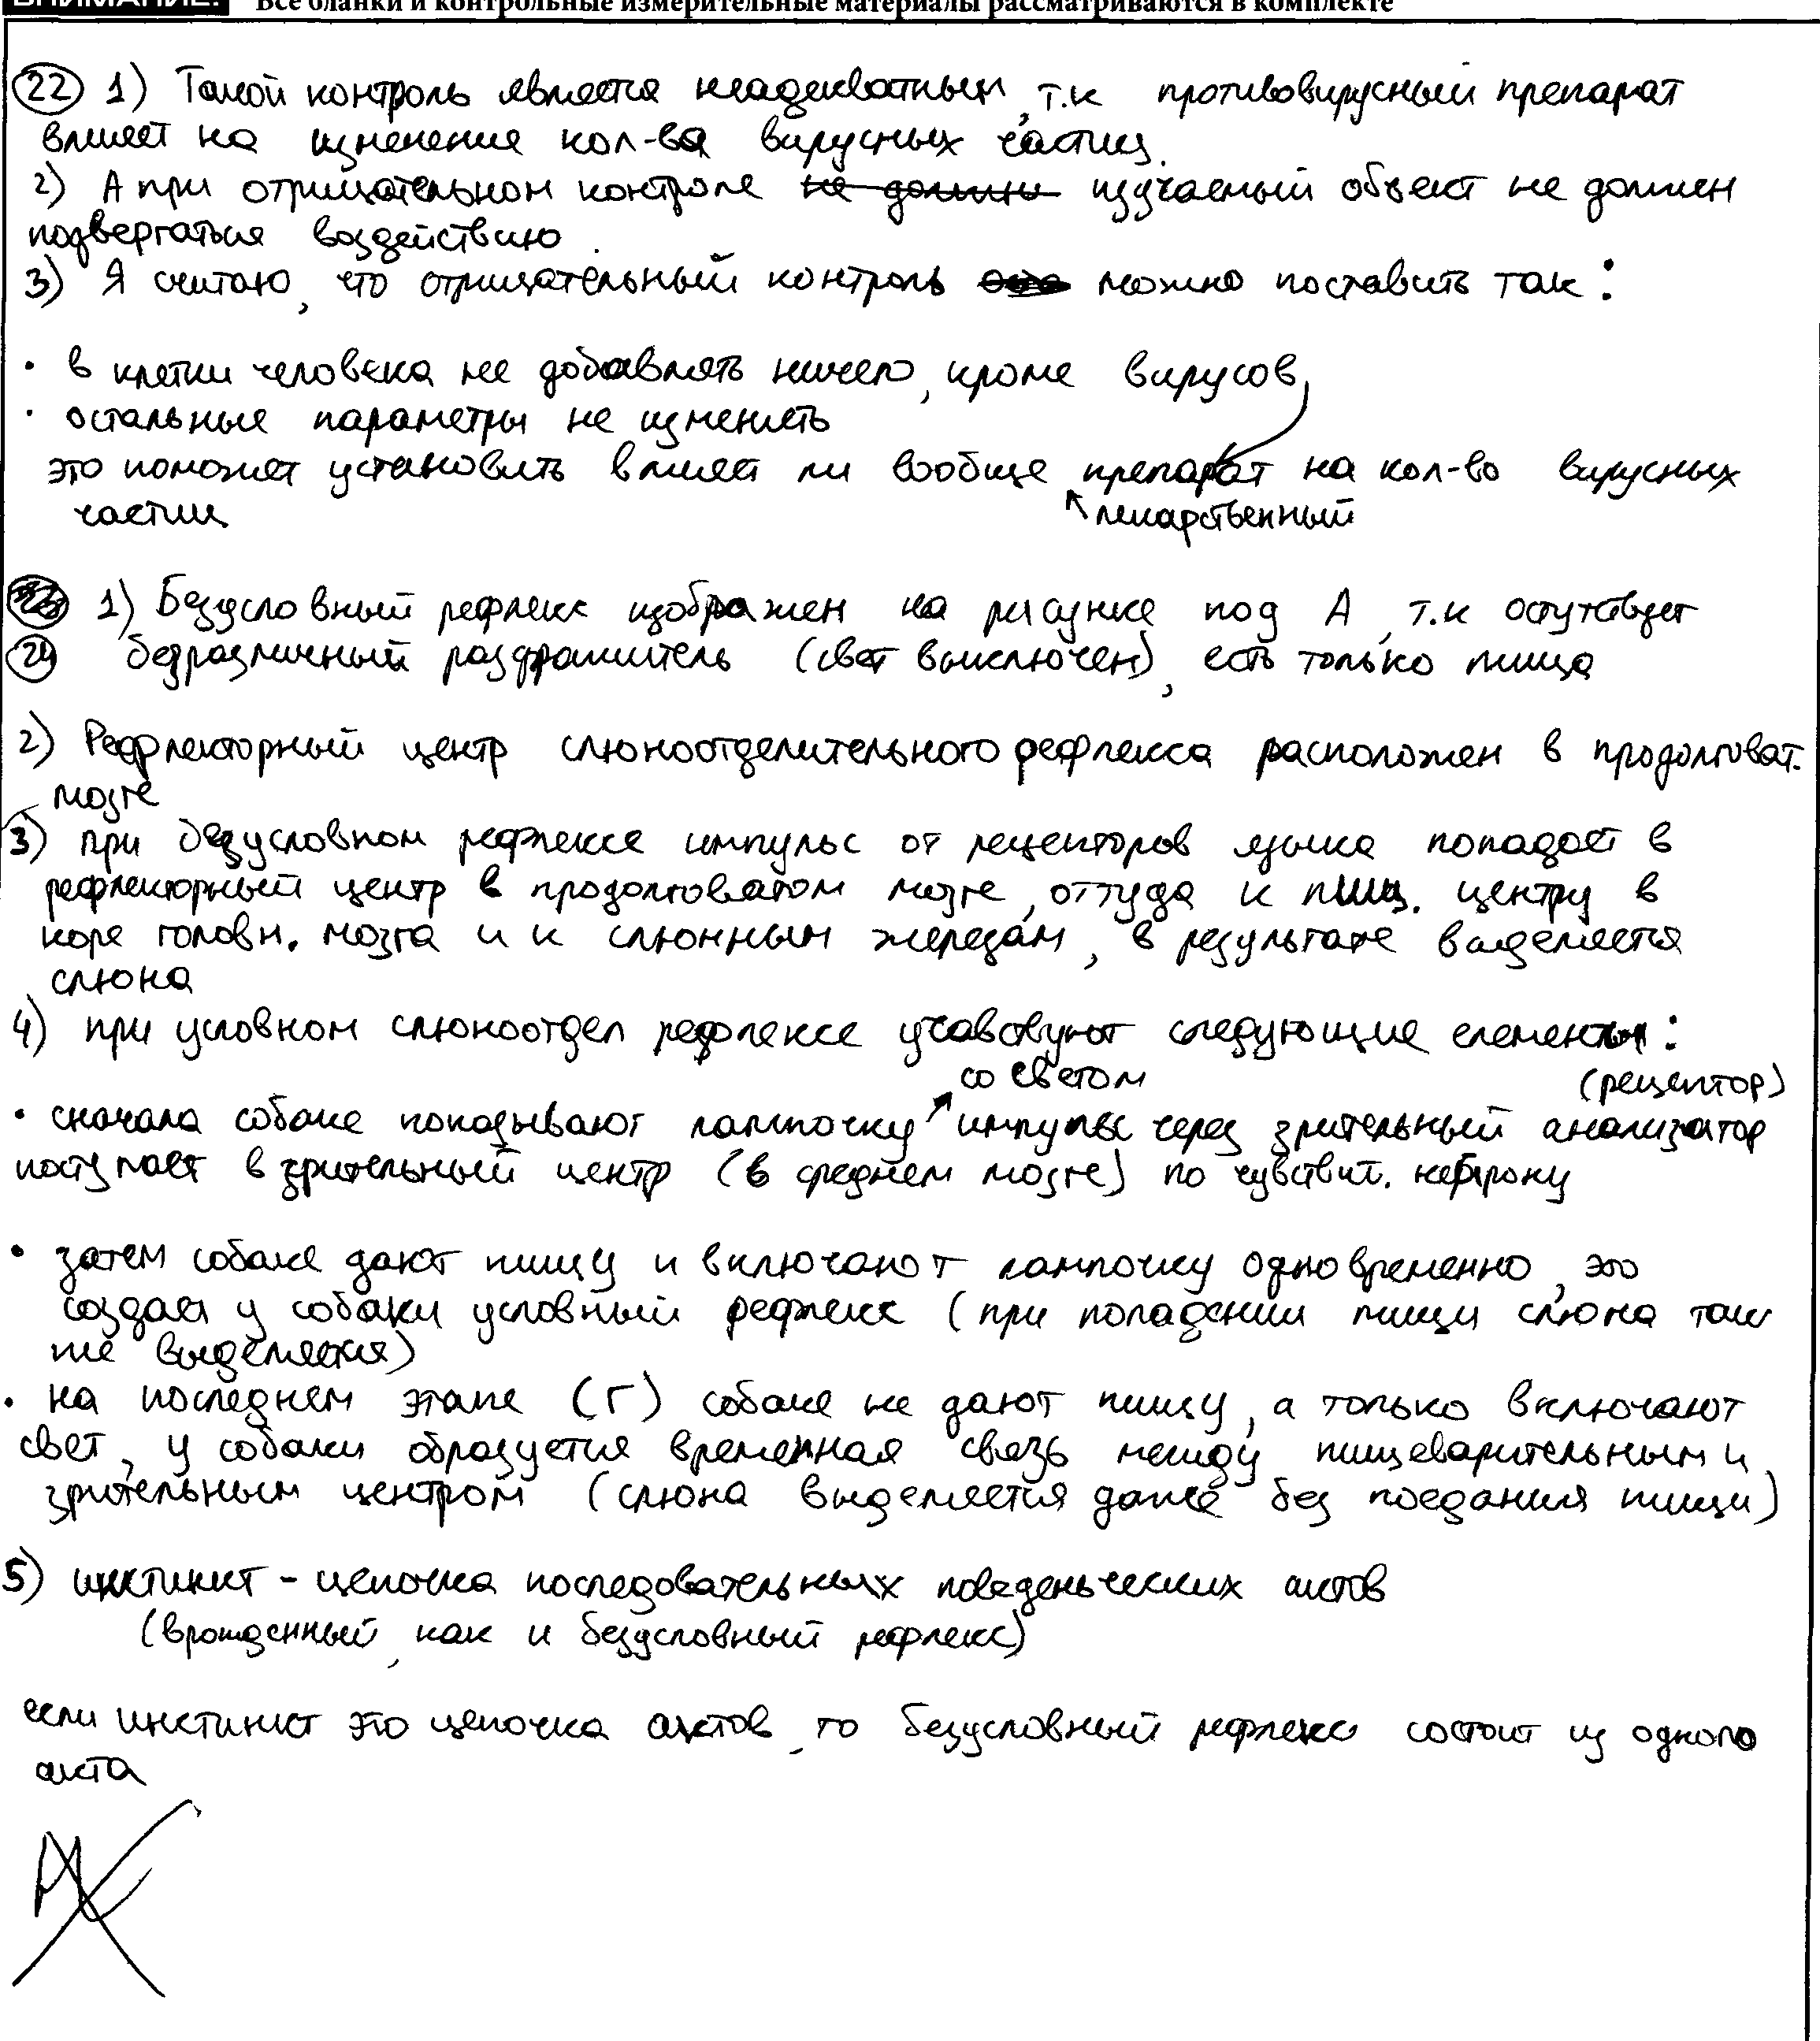 ВНИМАНИЕ! Все бланки и контрольные измерительные материалы рассматриваются в комплекте
22 1) Такой контроль является неадекватным, т.к противовирусный препарат
влияет на изменение кол-ва вирусных частиц.
2) А при отрицательном контроле не должны изучаемый объект не должен
подвергаться воздействию.
3) Я считаю, что отрицательный контроль можно поставить так:
• в клетки человека не добавлять ничего, кроме вирусов,
• остальные параметры не изменять
это поможет установить влияет ли вообще препарат на кол-во вирусных
частиц
лекарственный
1) Безусловный рефлекс изображен на рисунке под А, т.к остутствует
24 безразличный раздражитель (свет выключен), есть только пища
2) Рефлекторный центр слюноотделительного рефлекса расположен в продолговат.
мозге
3) при безусловном рефлексе импульс от рецепторов языка попадает в
рефлекторный центр в продолговатом мозге, оттуда к пищ. центру в
коре головн. мозга и к слюнным железам, в результате выделяется
слюна
4) при условном слюноотдел рефлексе учавствуют следующие елементы:
со светом (рецептор)
• сначала собаке показывают лампочку импульс через зрительный анализатор
поступает в зрительный центр (в среднем мозге) по чувствит. нейрону
• затем собаке дают пищу и включают лампочку одновременно, это
создает у собаки условный рефлекс (при попадении пищи слюна так
же выделяется)
• на последнем этапе (Г) собаке не дают пищу, а только включают
свет, у собаки образуется временная связь между пищеварительным и
зрительным центром (слюна выделяется даже без поедания пищи)
5) инстинкт - цепочка последовательных поведеньческих актов
(врожденный, как и безусловный рефлекс)
если инстинкт это цепочка актов, то безусловный рефлекс состоит из одного
акта